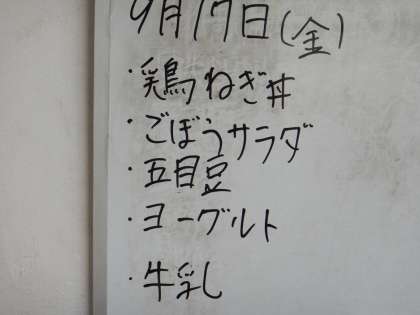 9月17日(金)
・鶏ねぎ丼
・ごぼうサラダ
・五目豆
・ヨーグルト
・牛乳